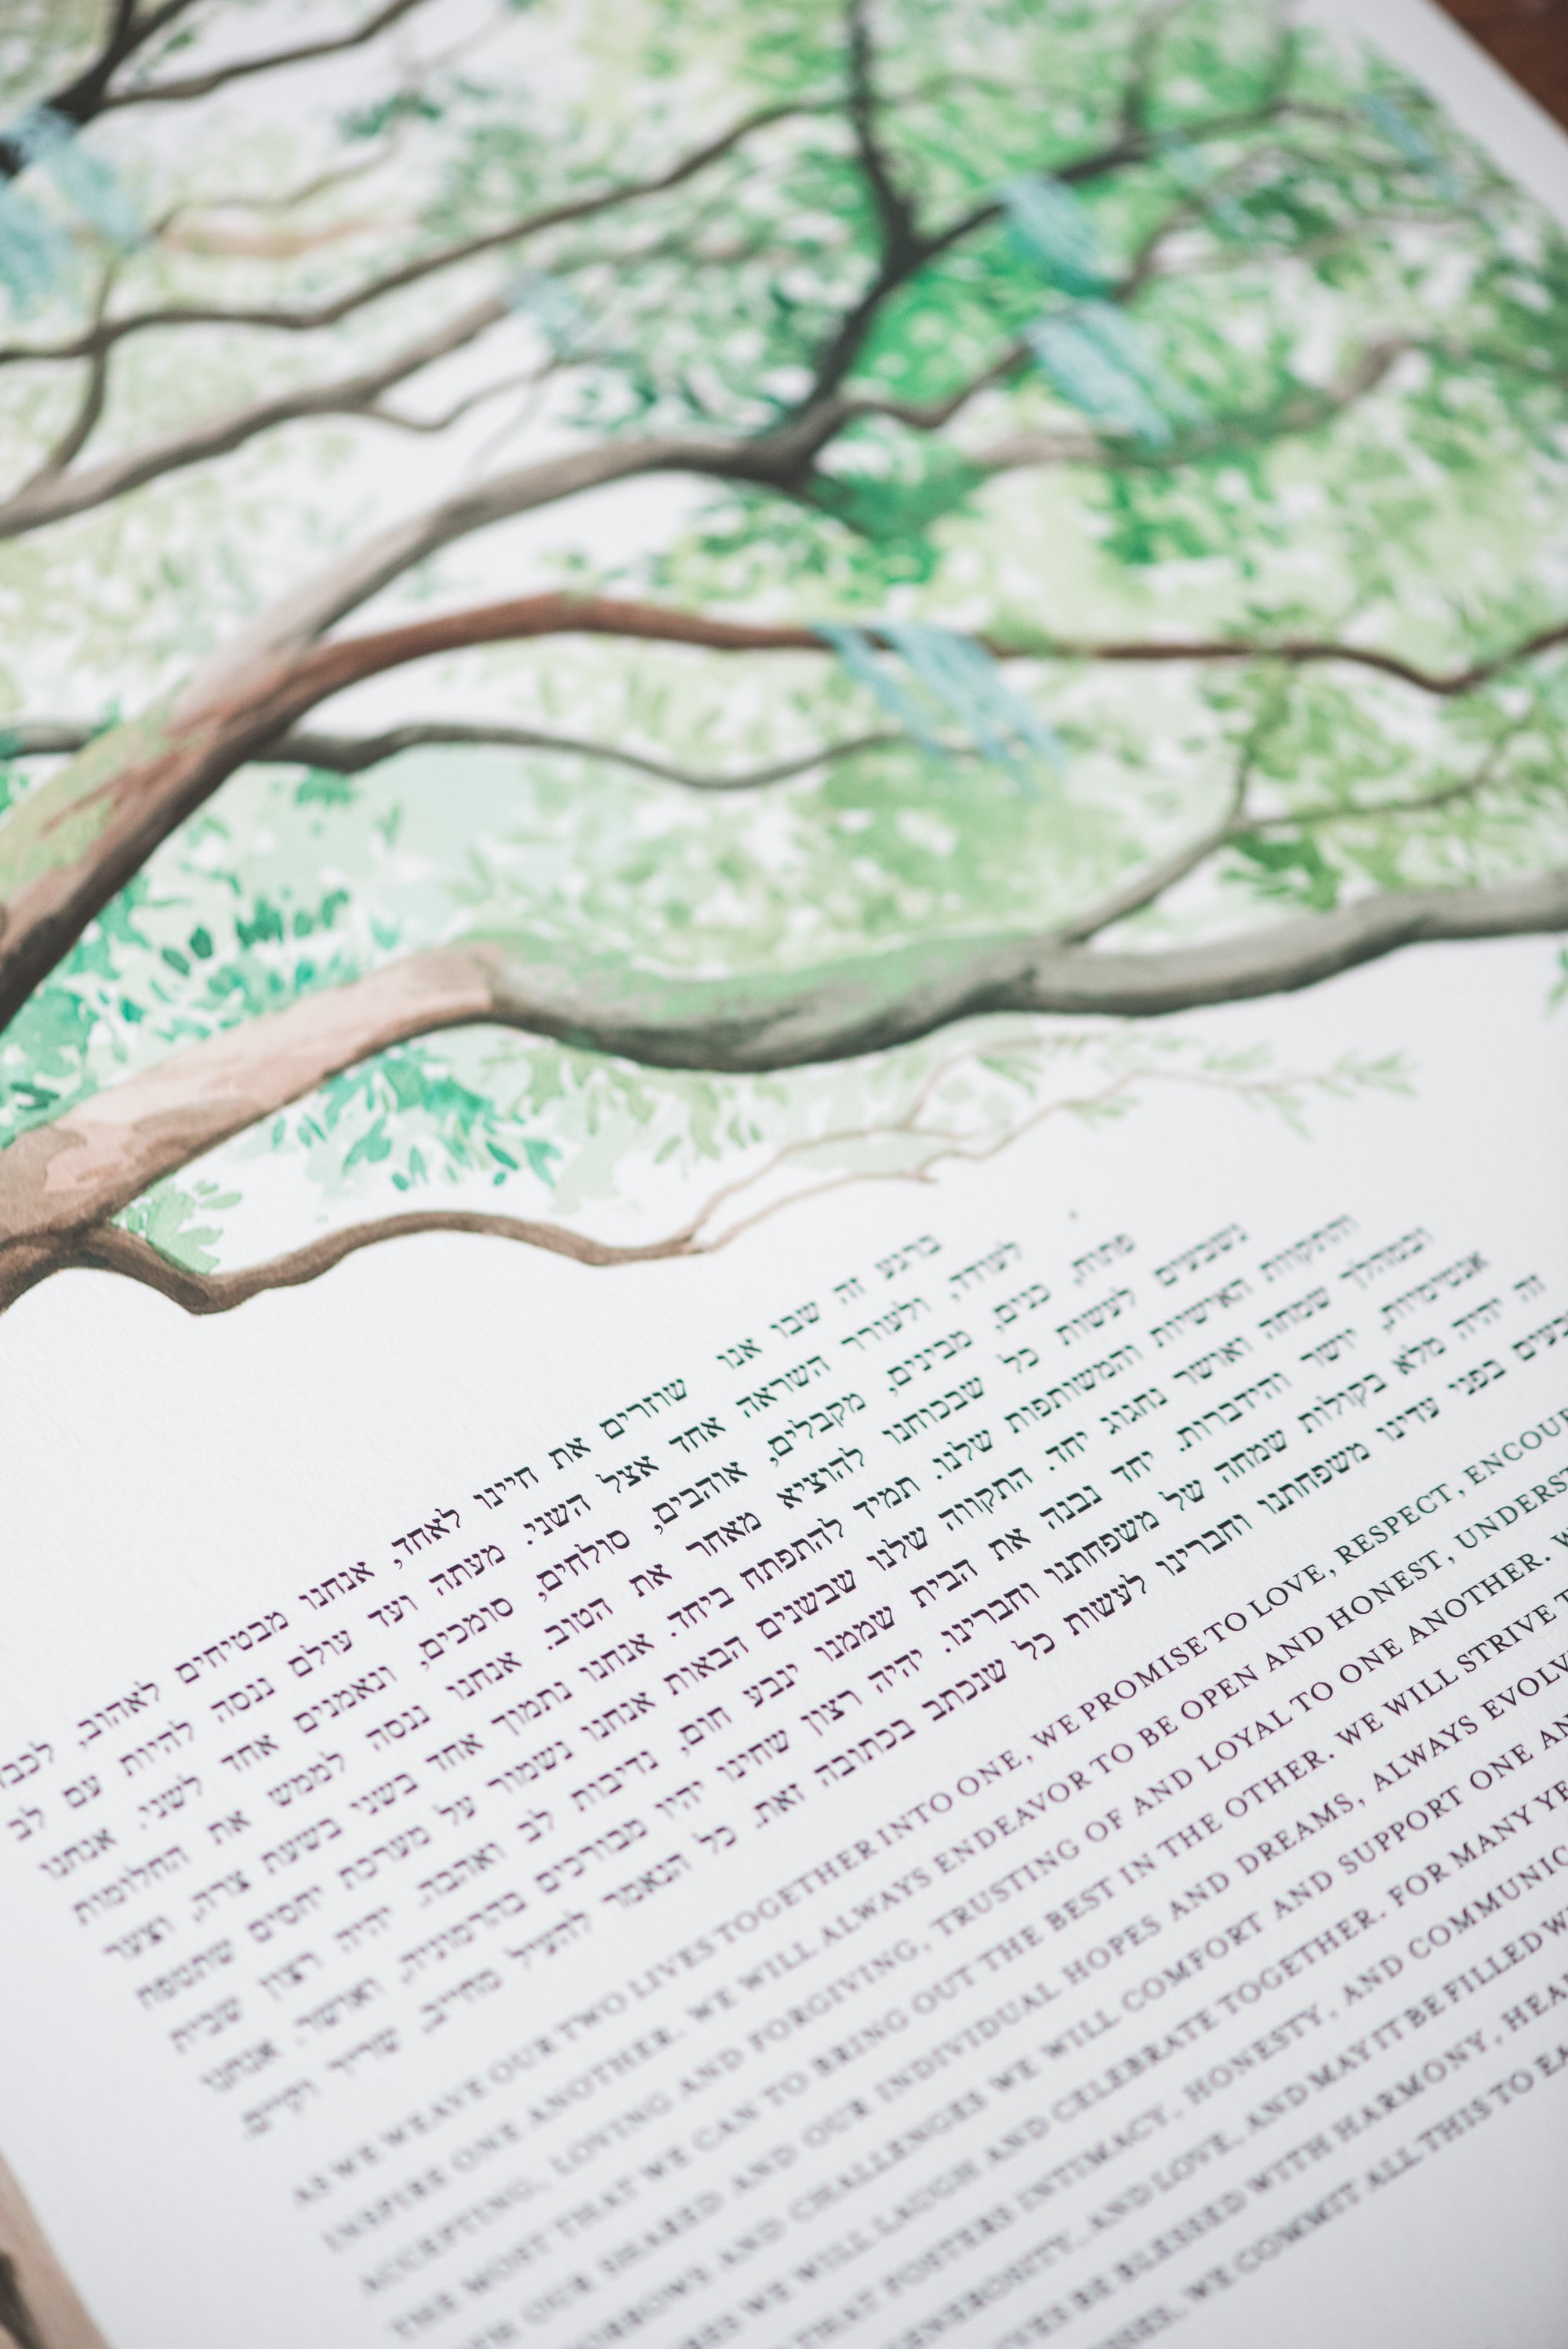 ברגע זה שבו אנו שוזרים את חיינו לאחד, אנחנו מבטיחים לאהוב, לכב
לעודד, ולעורר השראה אחד אצל השני. מעתה ועד עולם ננסה להיות עם לב
פתוח, כנים, מבינים, מקבלים, אוהבים, סולחים, סומכים, ונאמנים אחד לשני. אנחנו
נשבעים לעשות כל שבכוחנו להוציא מאחר את הטוב. אנחנו ננסה לממש את החלומות
והתקוות האישיות והמשותפות שלנו. תמיד להתפתח ביחד. אנחנו נתמוך אחד בשני בשעת צרה, וצער
ובמהלך שמחה ואושר נחגוג יחד. התקווה שלנו שבשנים הבאות אנחנו נשמור על מערכת יחסים שתטפח
אנטימיות, יושר והידברות. יחד נבנה את הבית שממנו ינבע חום, נדיבות לב ואהבה. יהיה רצון שבית
זה יהיה מלא בקולות שמחה של משפחתנו וחברינו. יהיה רצון שחיינו יהיו מבורכים בהרמוניה, ואושר. אנחנו
בעים בפני עדינו משפחתנו וחברינו לעשות כל שנכתב בכתובה זאת. כל הנאמר להעיל מחייב, שריר וקיים.
AS WE WEAVE OUR TWO LIVES TOGETHER INTO ONE, WE PROMISE TO LOVE, RESPECT, ENCOUR
INSPIRE ONE ANOTHER. WE WILL ALWAYS ENDEAVOR TO BE OPEN AND HONEST, UNDERST
ACCEPTING, LOVING AND FORGIVING, TRUSTING OF AND LOYAL TO ONE ANOTHER. W
THE MOST THAT WE CAN TO BRING OUT THE BEST IN THE OTHER. WE WILL STRIVE T
OUR SHARED AND OUR INDIVIDUAL HOPES AND DREAMS, ALWAYS EVOLV
ORROWS AND CHALLENGES WE WILL COMFORT AND SUPPORT ONE AN
WE WILL LAUGH AND CELEBRATE TOGETHER. FOR MANY YE
THAT FOSTERS INTIMACY, HONESTY, AND COMMUNIC
GENEROSITY, AND LOVE, AND MAY IT BE FILLED W
BE BLESSED WITH HARMONY, HEA
WE COMMIT ALL THIS TO EA